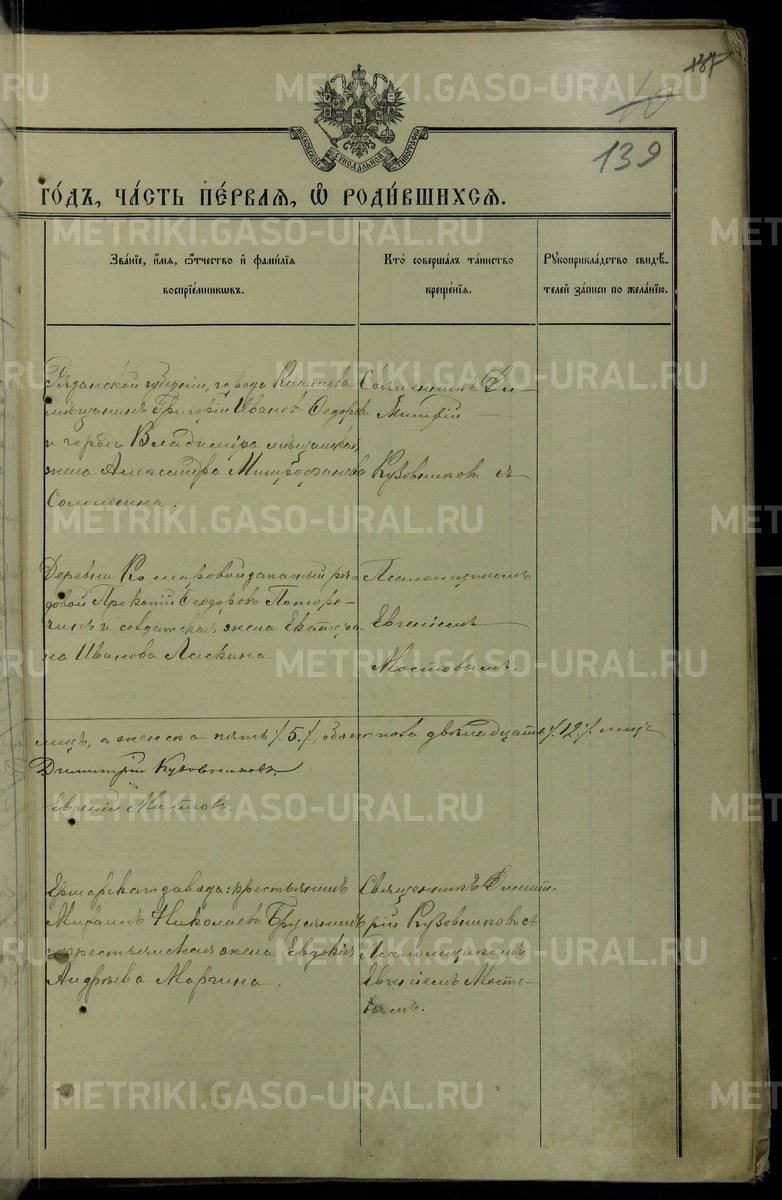 137
10
139
МОСКОВСКОЙ СѴНОДАЛЬНОЙ ТИПОГРАФІИ
ГО́ДЪ, ЧА́СТЬ ПЕ́РВАЯ, Ѡ҆ РОДИ́ВШИХСЯ.
Зва́ніе, и҆́мя, ѻ҆́тчество и҆ фами́лія
воспріе́мникѡвъ.
Кто̀ соверша́лъ та́инство
креще́нія.
Рꙋкоприкла́дство свидѣ́-
телей за́писи по жела́нію.
губерніи, города
мѣщанинъ Григорій Ивановъ Ѳедоровъ
и города Владиміра мѣщанская
жена Александра Митрофанова
Священникъ Ди-
митрій
Кузовниковъ съ
Деревни Комаровой запасный ря-
довой Прокопій Ѳеодоровъ Поторо-
чинъ и солдатская жена Екатери-
на Иванова Ласкина
Псаломщикомъ
Евгеніемъ
Мостовымъ.
лицъ, а женска пять /.5./, обоего пола двѣнадцать /.12./. лицъ
Димитрій Кузовниковъ.
Евгеній Мостовъ.
завода: крестьянинъ
Михаилъ Николаевъ Брусянинъ
и крестьянская жена Евдокія
Андреева Маргина.
Священникъ Димит-
рій Кузовниковъ съ
Псаломщикомъ
Евгеніемъ Мосто-
вымъ.
METRIKI.GASO-URAL.RU